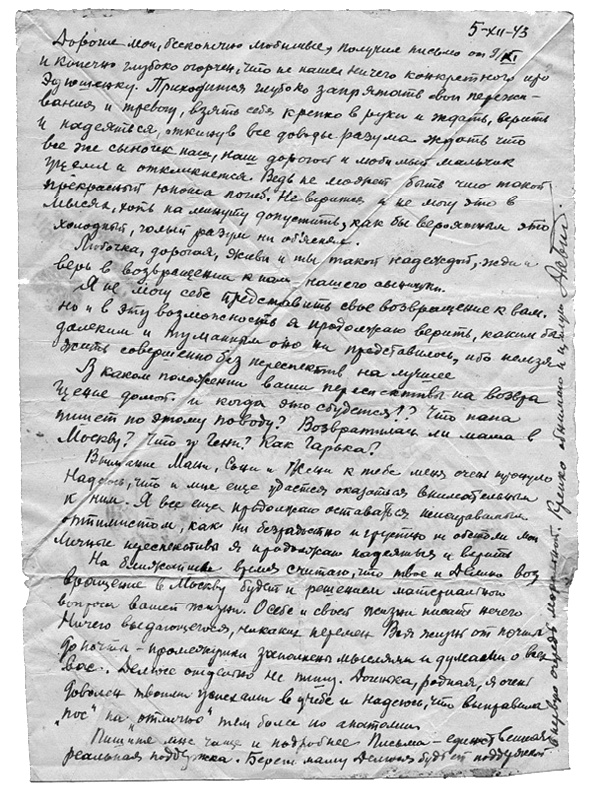 5-XII-43
Дорогие мои, бесконечно любимые, получил письмо от 9/XI
и конечно глубоко огорчен, что не нашел ничего конкретного про
Эдюшеньку. Приходится глубоко запрятать свои пережи-
вания и тревогу, взять себя крепко в руки и ждать, верить
и надеяться, откинув все доводы разума ждать что
все же сыночек наш, наш дорогой и любимый мальчик
уцелел и откликнется. Ведь не может быть что такой
прекрасный юноша погиб. Не верится и не могу это в
мыслях, хоть на минуту допустить, как бы вероятным это
холодный, голый разум ни объяснял.
Любочка, дорогая, живи и ты такой надеждой, жди и
верь в возвращение к нам нашего сыночки.
Я не могу себе представить свое возвращение к вам,
но и в эту возможность я продолжаю верить, каким бы
далеким и туманным оно ни представилось, ибо нельзя
жить совершенно без перспектив на лучшее
В каком положении ваши перспективы на возвра
щение домой и когда это сбудется!? Что папа
пишет по этому поводу? Возвратилась ли мама в
Москву? Что у Гени? Как Гарька?
Внимание Мани, Сони и Жени к тебе меня очень тронуло
Надеюсь, что и мне еще удастся оказаться внимательным
к ним. Я все еще продолжаю оставаться неисправимым
оптимистом, как ни безрадостно и грустно ни обстоят мои
личные перспективы я продолжаю надеяться и верить
На ближайшее время считаю, что твое и Делино воз
вращение в Москву будет и решением материального
вопроса вашей жизни. О себе и своей жизни писать нечего
Ничего выдающегося, никаких перемен Вся жизнь от почты
до почты - промежутки заполнены мыслями и думами о всех
вас. Делюсе отдельно не пишу. Доченька, родная, я очень
доволен твоими успехами в учебе и надеюсь, что выправила
„пос" на „отлично" тем более по анатомии
Пишите мне чаще и подробнее Письма - единственная
реальная поддержка. Береги маму Делюся будь ей поддержкой
в первую очередь моральной. Крепко обнимаю и целую